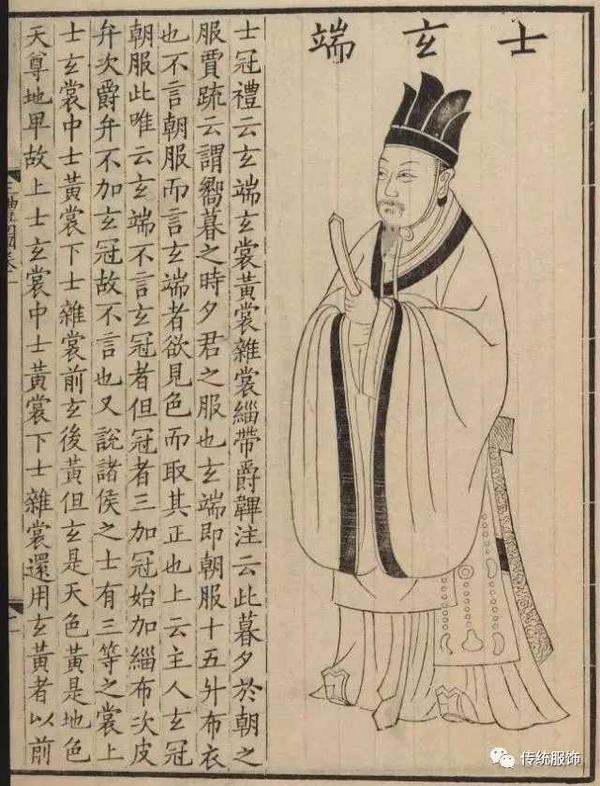 士玄端
士冠禮云玄端玄裳黃裳雜裳緇帶爵韠注云此暮夕於朝之
服賈疏云謂嚮暮之時夕君之服也玄端即朝服十五升布衣
也不言朝服而言玄端者欲見色而取其正也上云主人玄冠
朝服此唯云玄端不言玄冠者但冠者三加冠始加緇布次皮
弁次爵弁不加玄冠故不言也又說諸侯之士有三等之裳上
士玄裳中士黃裳下士雜裳前玄後黃但玄是天色黃是地色
天尊地卑故上士玄裳中士黃裳下士雜裳還用玄黃者以前
传统服饰